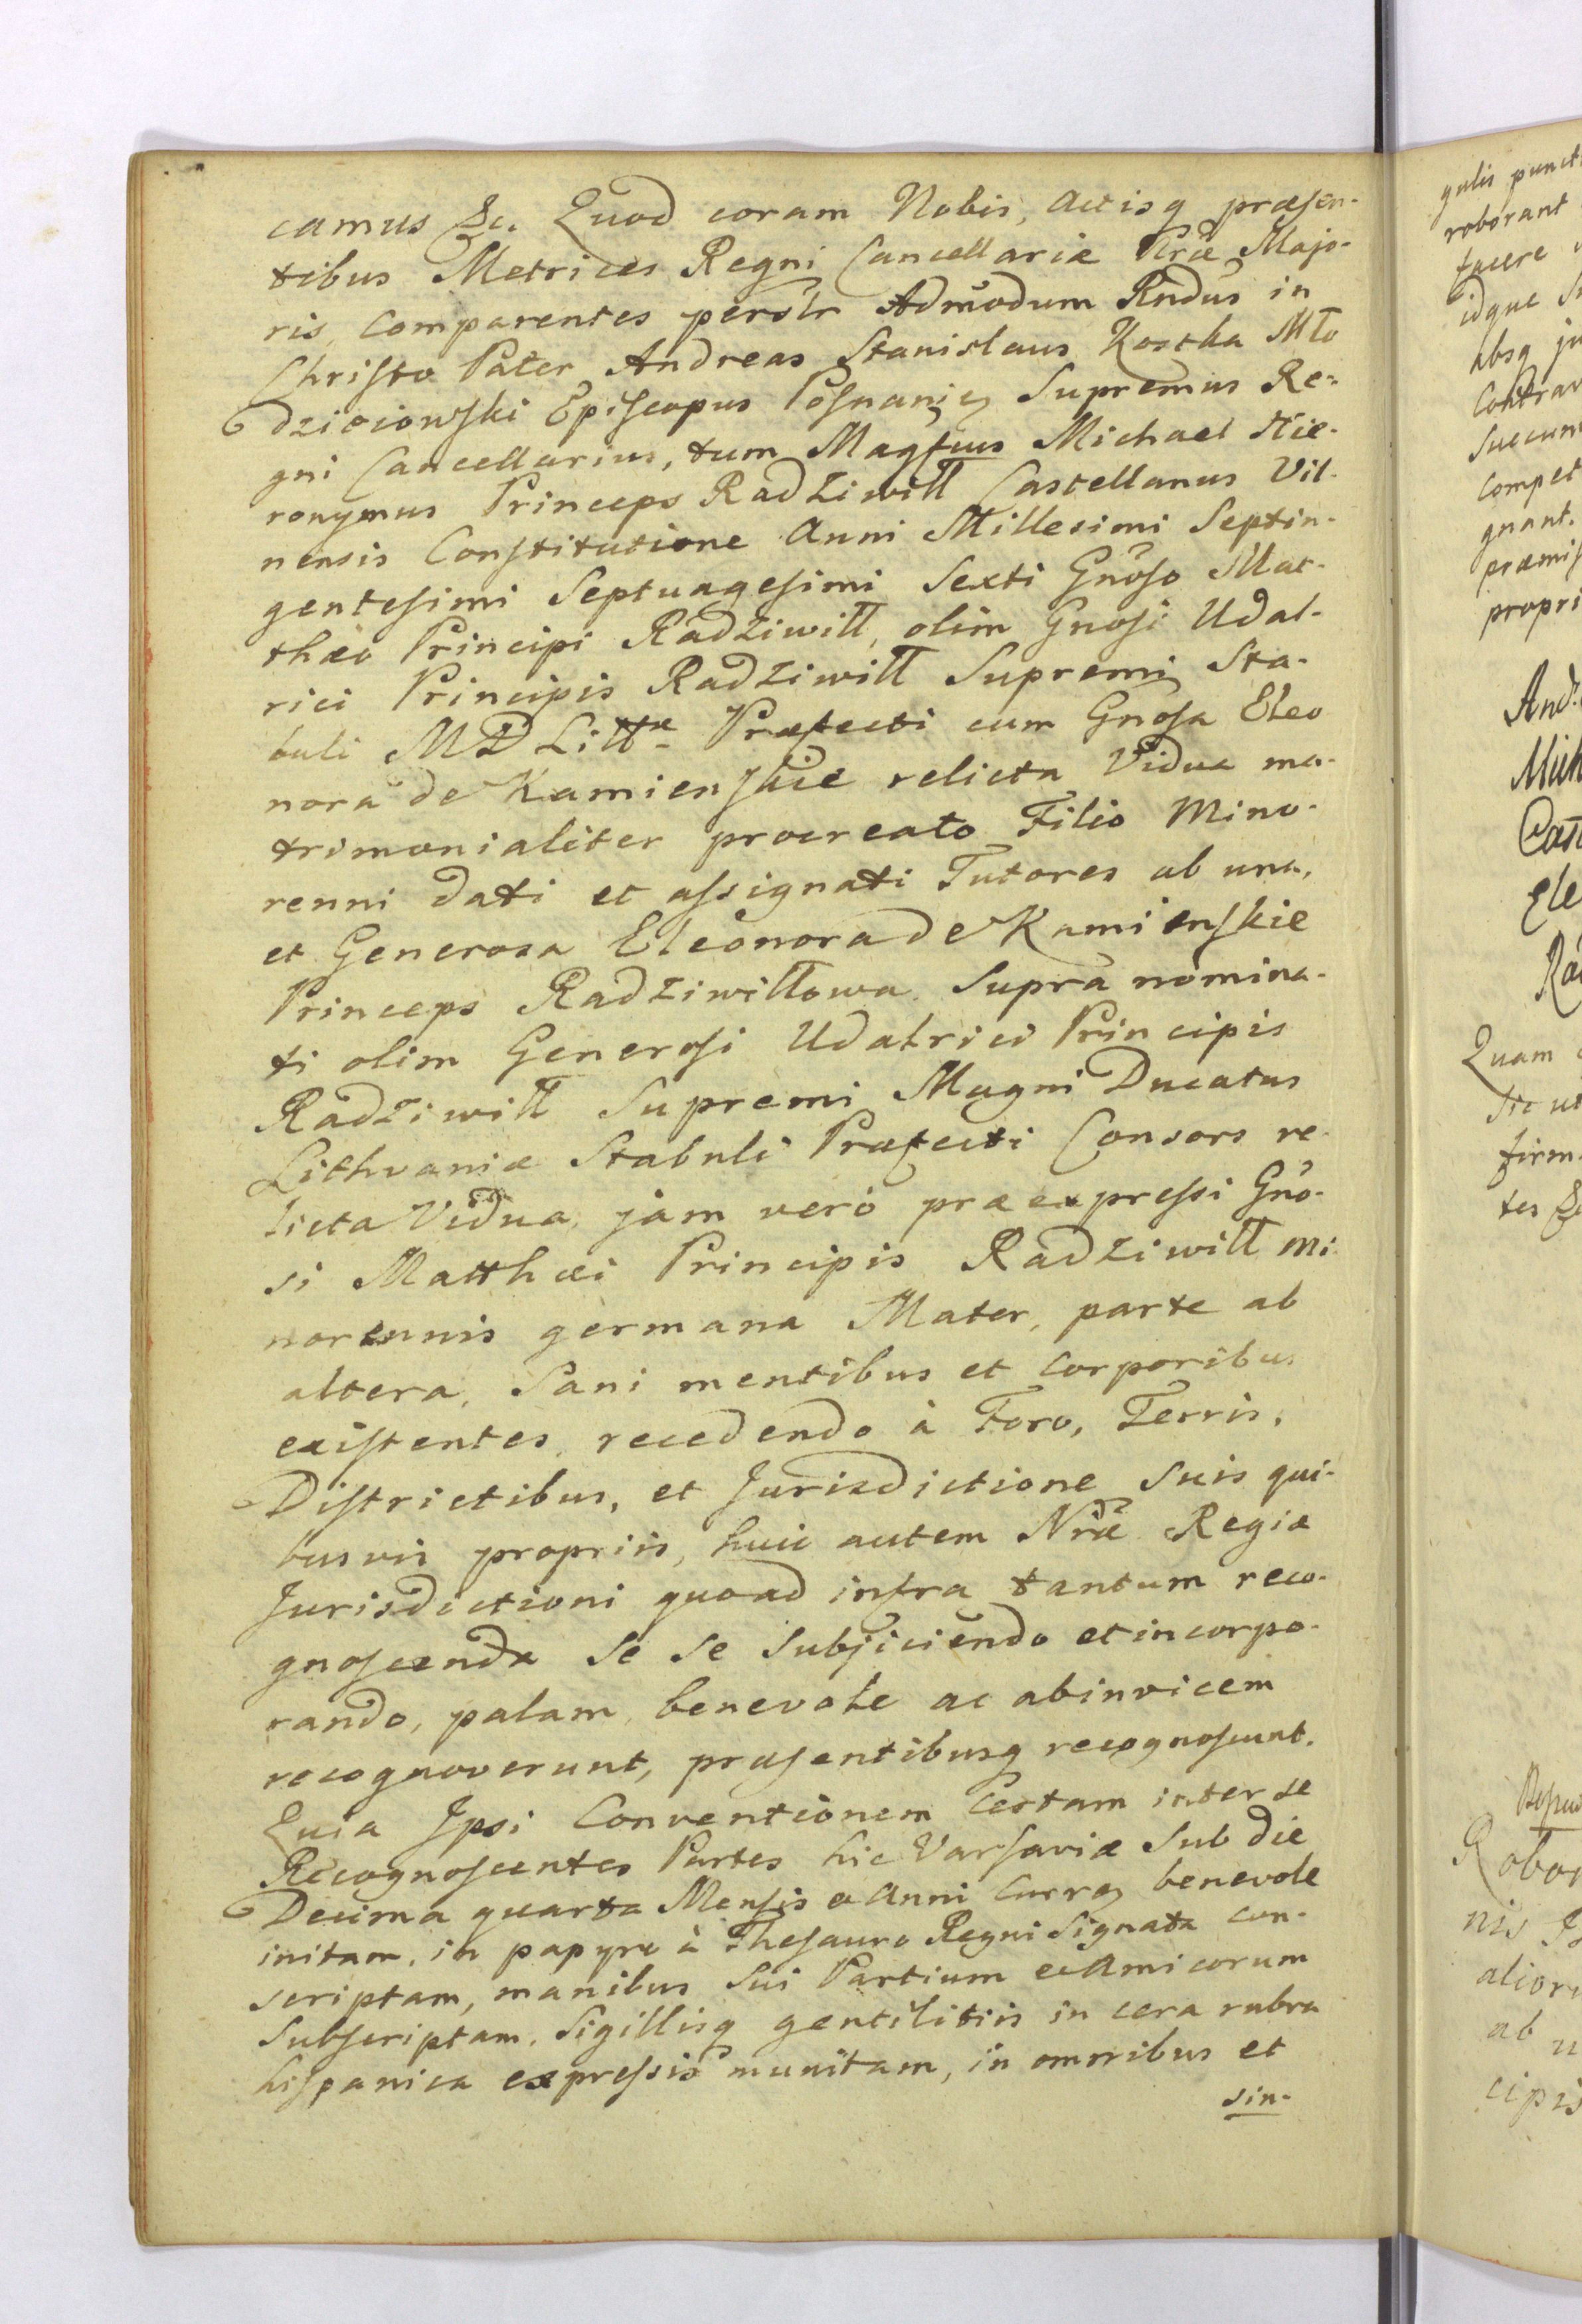 camus &c. Quod coram Nobis, Actisq præsen-
tibus Metrices Regni Cancellariæ Nræ Majo-
ris, comparentes persltr Admodum Rndus in
Christo Pater Andreas Stanislaus Kostka Mło
dzieiowski Episcopus Posnanien Supremus Re-
gni Cancellarius, tum Magfcus Michael Hie-
ronymus Princeps Radziwiłł Castellanus Vil-
nensis Constitutione Anni Millesimi Septin-
gentesimi Septuagesimi Sexti Gnoso Mat-
thæo Principi Radziwiłł, olim Gnosi Udal-
rici Principis Radziwiłł Supremi Sta-
buli MD Littæ Præfecti cum Gnosa Eleo
nora de Kamienskie relicta Vidua ma-
trimonialiter procreato Filio Mino-
renni dati et assignati Tutores ab una,
et Generosa Eleonora de Kamienskie
Princeps Radziwiłłowa Supra nomina-
ti olim Generosi Udalrici Principis
Radziwiłł Supremi Magni Ducatus
Lithvaniæ Stabuli Præfecti Consors re-
licta Vidua, jam vero præexpressi Gno-
si Matthæi Principis Radziwiłł mi-
norennis germana Mater, parte ab
altera, Sani mentibus et corporibus
existentes, recedendo à Foro, Terris,
Districtibus, et Jurisdictione Suis qui-
busvis propriis, huic autem Nræ Regiæ
Jurisdictioni quoad infra tantum reco-
gnoscenda Se Se Subjiciendo et incorpo-
rando, palam, benevole ac abinvicem
recognoverunt, præsentibusq recognoscunt.
Quia Ipsi Conventionem Certam inter se
Recognoscentes Partes hic Varsaviæ Sub die
Decima quarta Mensis et Anni Curren benevole
initam, in papyro à Thesauro Regni Signata con-
scriptam, manibus Sui Partium et Amicorum
Subscriptam, Sigillisq gentilitiis in cera rubra
hispanica expressis munitam, in omnibus et
sin-
gulis punct
roborant
facere
idque
absq ju
Contrav
Succum
Compet
gnant.
præmis
propri
And:
Mich
Cast
Ele
Rad
Quam
Sic ut
firm
tes &c
Robor
nis
alior
ab u
cipis